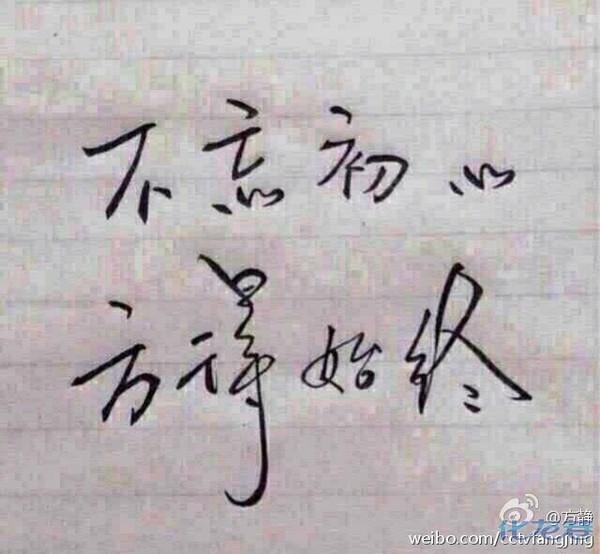 不忘初心
方得始终
@方静
化龙巷
weibo.com/cctvfangjing